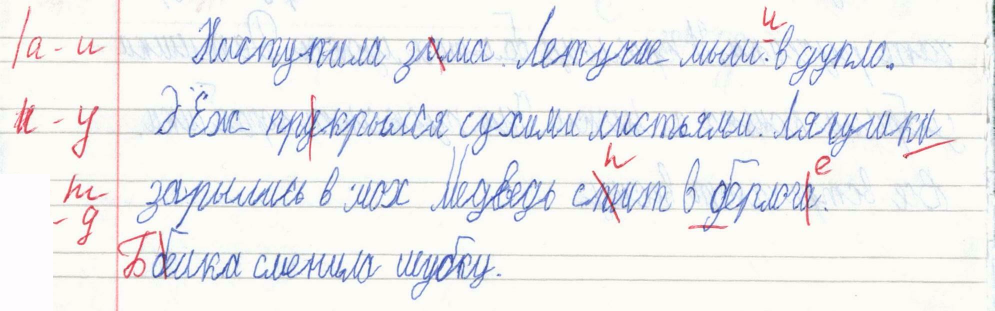 /а - и Наступила зима. Летучие мыши. в дупло. и
и - у Э Ёж прукрылся сухими листьями. Лягушки
т - д зарылись в мох Медведь стит в берлога. п е
Б белка сменила шубку.